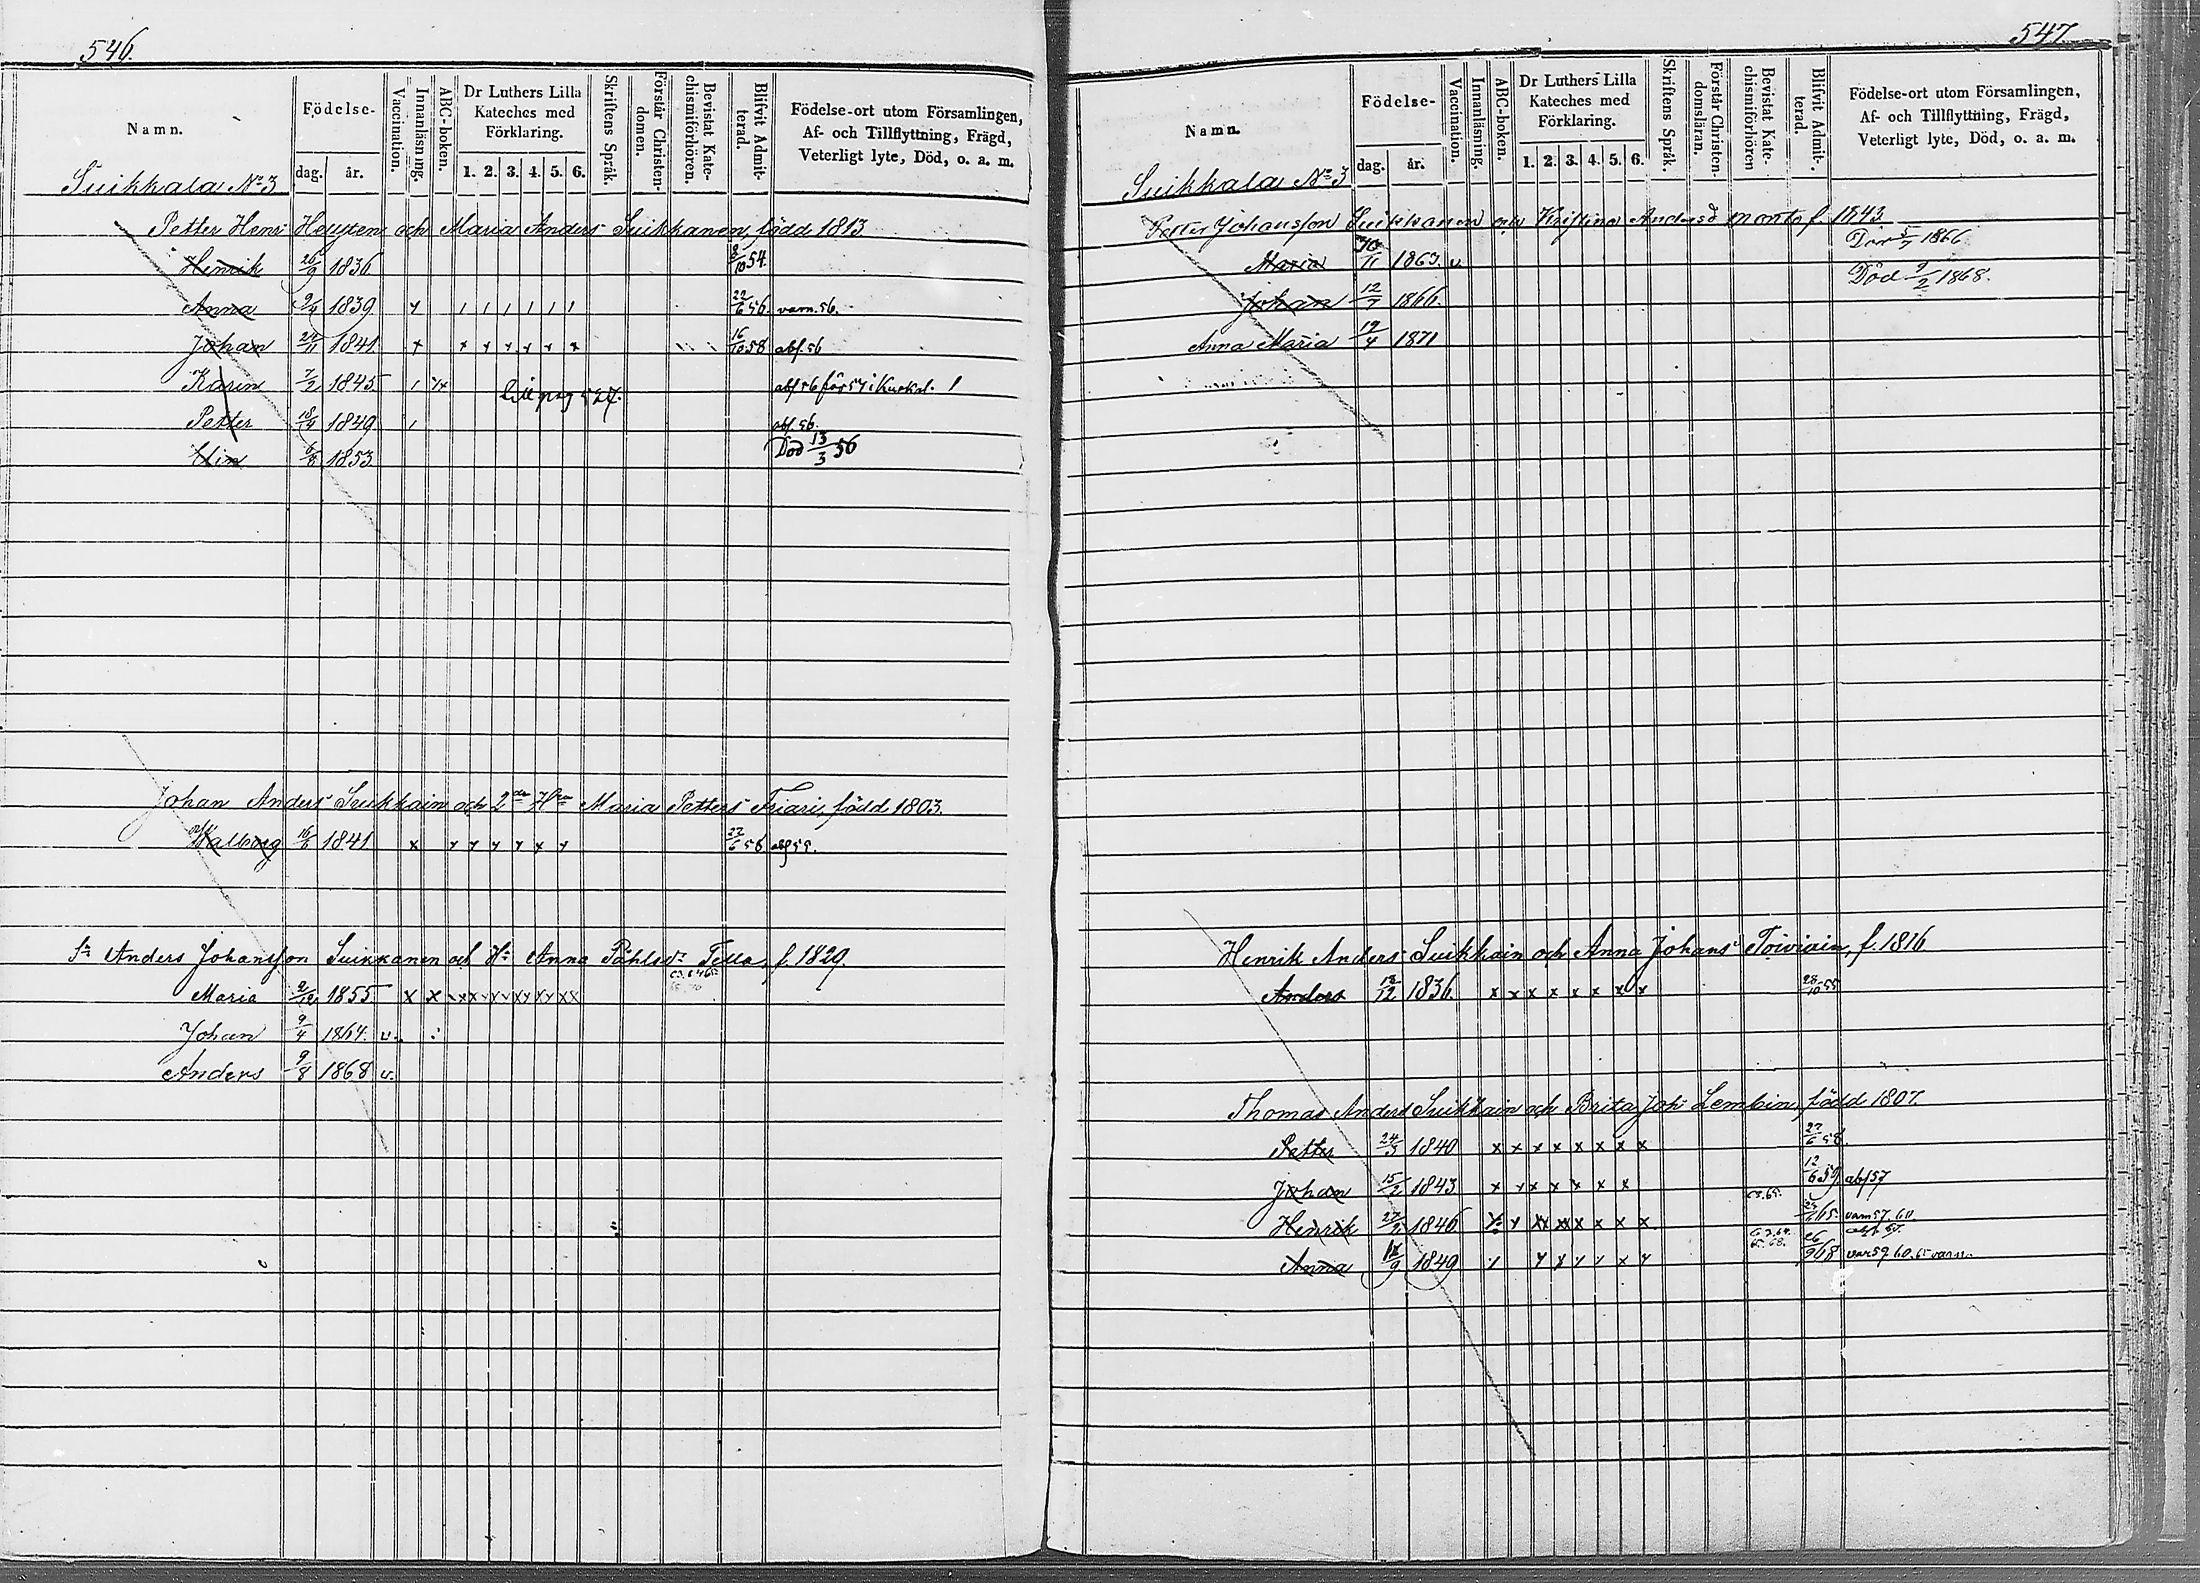 546.
Namn.
Födelse-
dag. år.
Vaccination.
Innanläsning.
ABC-boken.
Dr Luthers Lilla Kateches med Förklaring.
1. 2. 3. 4. 5. 6.
Skriftens Språk.
Förstår Christendomen.
Bevistat Katechismiförhören.
Blifvit Admitterad.
Födelse-ort utom Församlingen, Af- och Tillflyttning, Frägd, Veterligt lyte, Död, o. a. m.
Suikkala No 3
Petter Henr Heuten och Maria Anders Suikkanen, född 1813
Henrik 26/9 1836 8/10 54.
Anna 9/4 1839 22/6 56. varn. 56.
Johan 24/11 1841 x x x x x x x 16/10 58 abs. 56
Karin 7/2 1845 abs. 56 för 57 i Kurkal.
Till pag 527.
Petter 18/4 1849 abs. 56.
Elin 6/8 1853 Död 13/3 56
Johan Anders Suikkain och 2dra Hru Maria Petters Friari, född 1803.
Walborg 16/6 1841 22/6 56 abs 55.
Sn Anders Johansson Suikkanen och Hu Anna Påhlsdr Tella, f. 1829.
Maria 2/12 1855
Johan 9/4 1864. v.
Anders 9/8 1868 v.
547
Namn.
Födelse-
dag. år.
Vaccination.
Innanläsning.
ABC-boken.
Dr Luthers Lilla Kateches med Förklaring.
1. 2. 3. 4. 5. 6.
Skriftens Språk.
Förstår Christendomsläran.
Bevistat Katechismiförhören
Blifvit Admitterad.
Födelse-ort utom Församlingen, Af- och Tillflyttning, Frägd, Veterligt lyte, Död, o. a. m.
Suikkala No 3
Petter Johansson Suikkanen och Kristina Andersd Monto f. 1843
Maria 11 1863 v. Död 5/7 1866
Johan 12/7 1866. Död 9/2 1868.
Anna Maria 19/4 1871
Henrik Anders Suikkain och Anna Johans Toiviain, f. 1816
Anders 12 1836. x x x x x x x x 28/10 55
Thomas Anders Suikkain och Brita Joh Lembin, född 1807.
Petter 24/3 1840 x x x x x x x x 27/6 58.
Johan 15/2 1843 x x x x x x x 12/6 59 abs 57
Henrik 27/2 1846 65. varn 57. 60.
Anna 9 1849 68 var 59. 60. 65 varn.